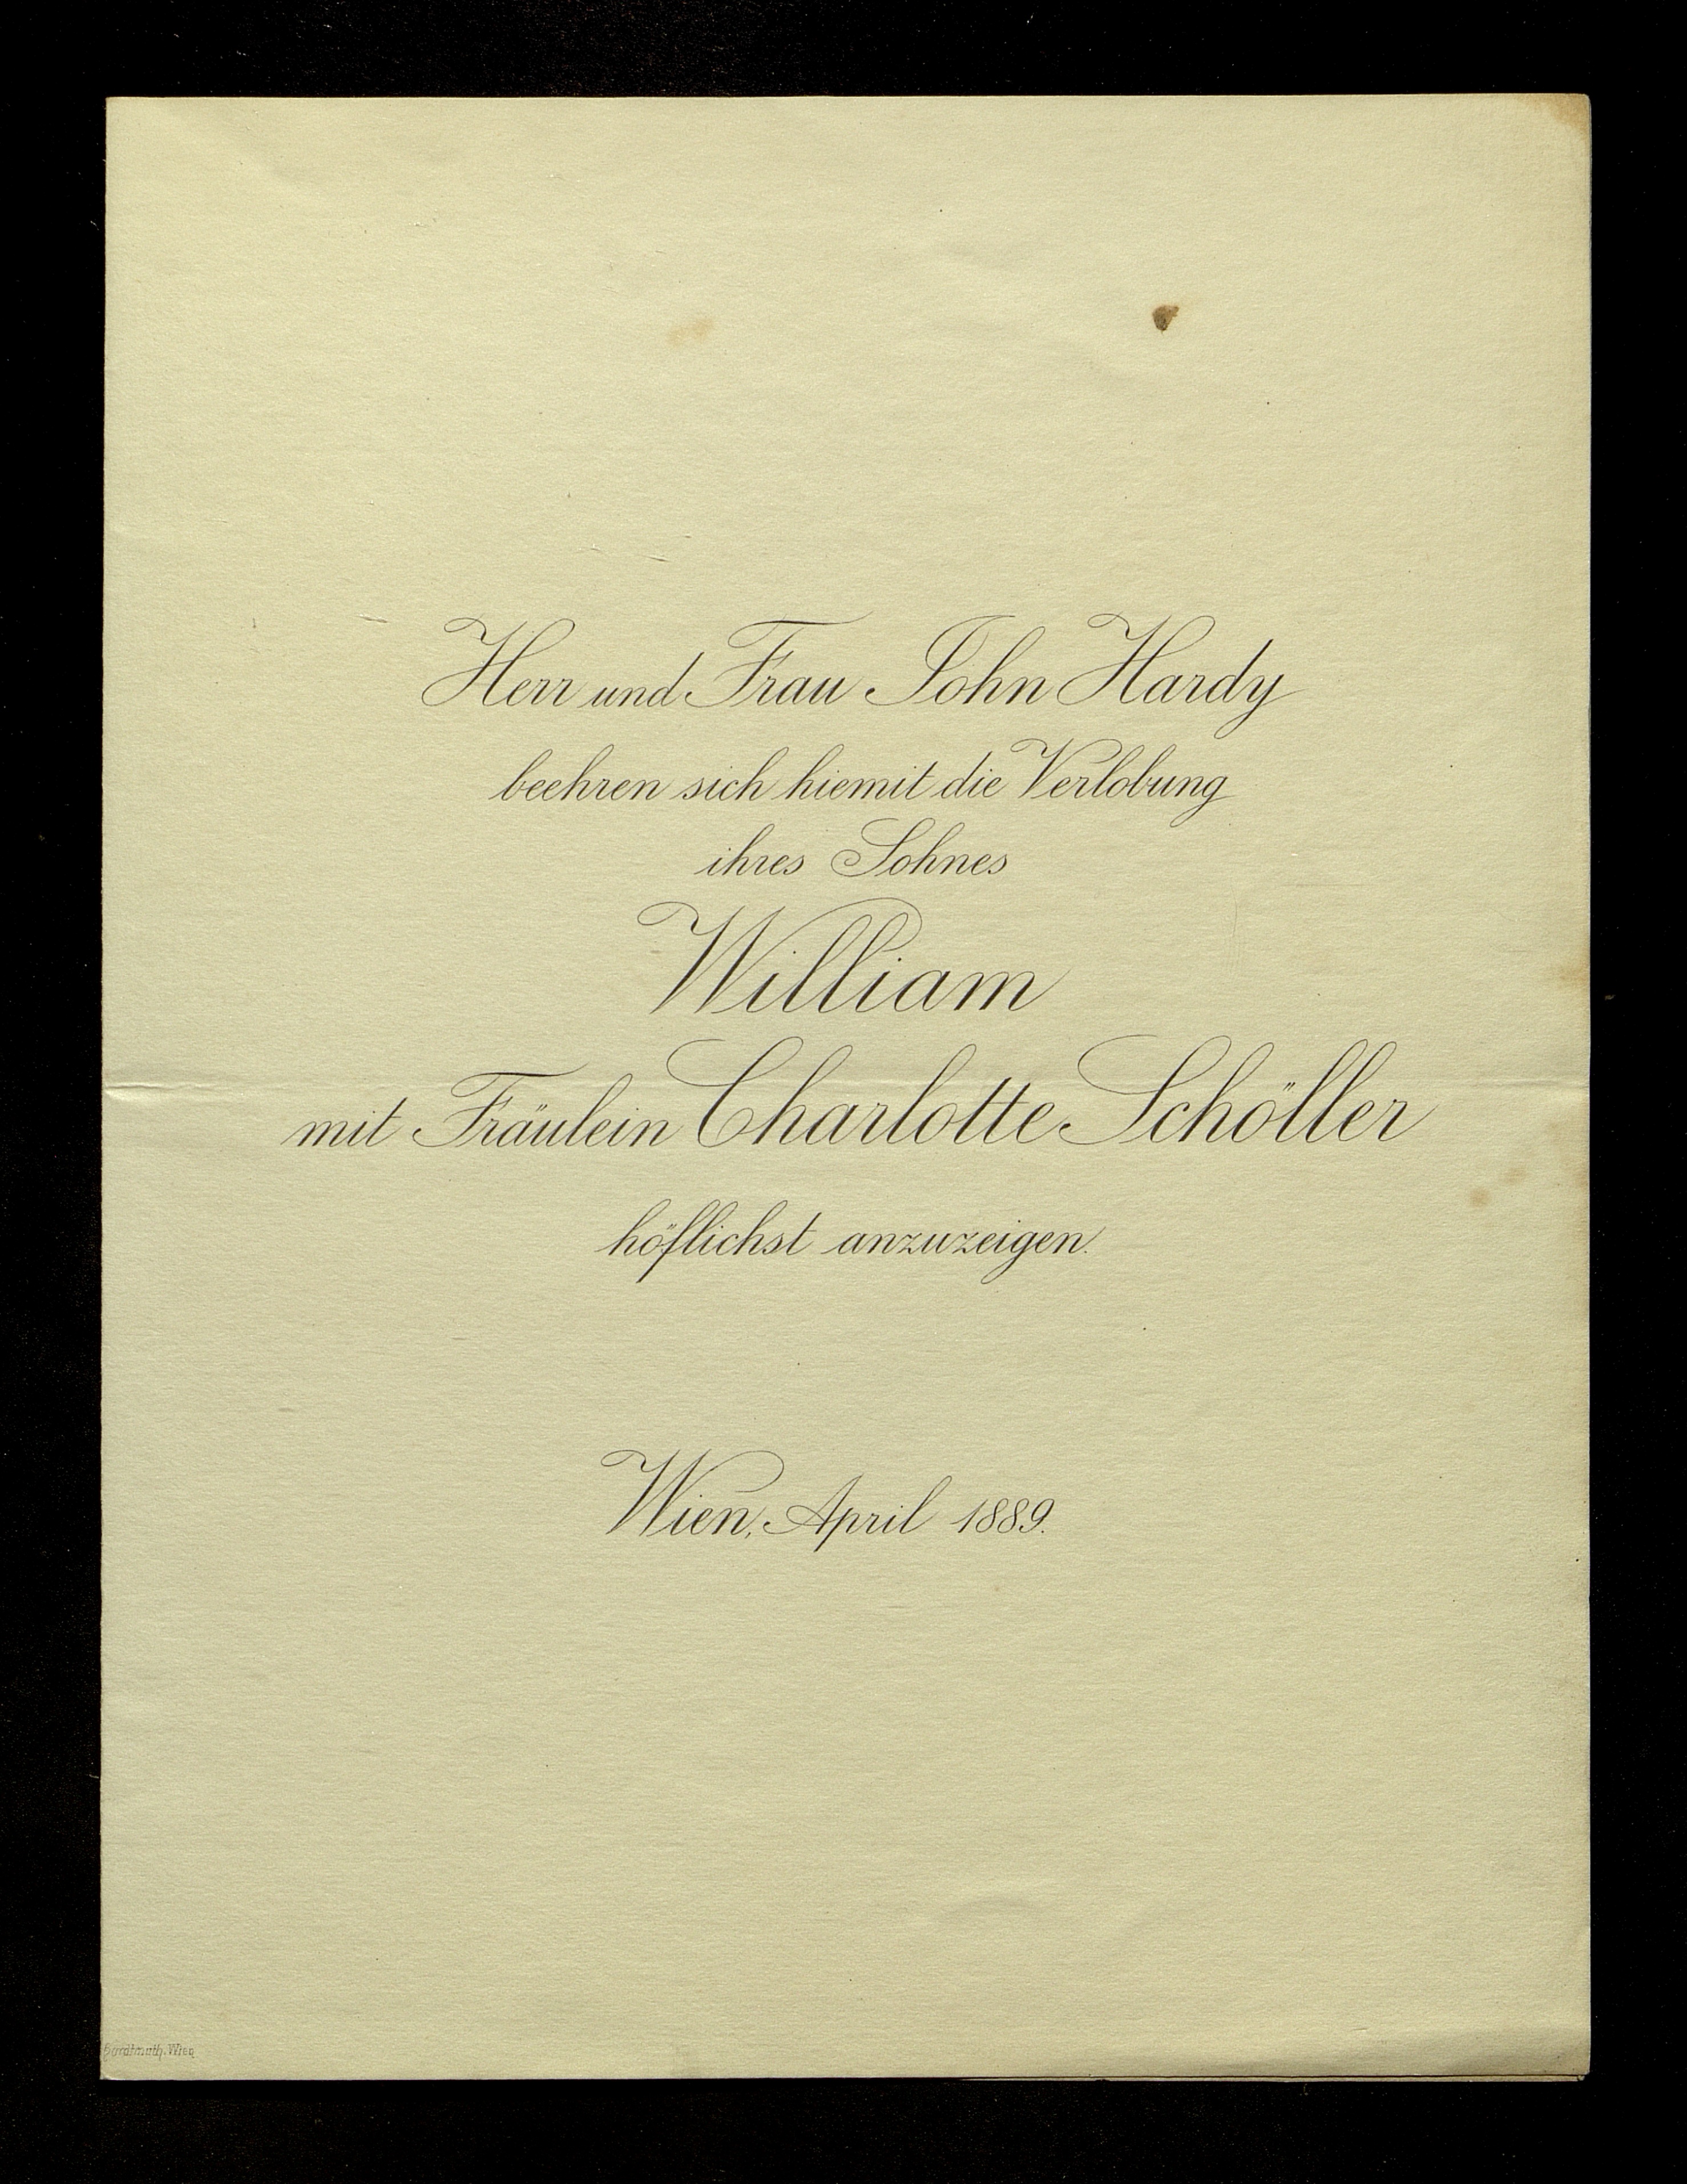 Herr und Frau John Hardy
beehren sich hiemit die Verlobung
ihres Sohnes
William
mit Fräulein Charlotte Schöller
höflichst anzuzeigen.
Wien, April 1889.
Wien